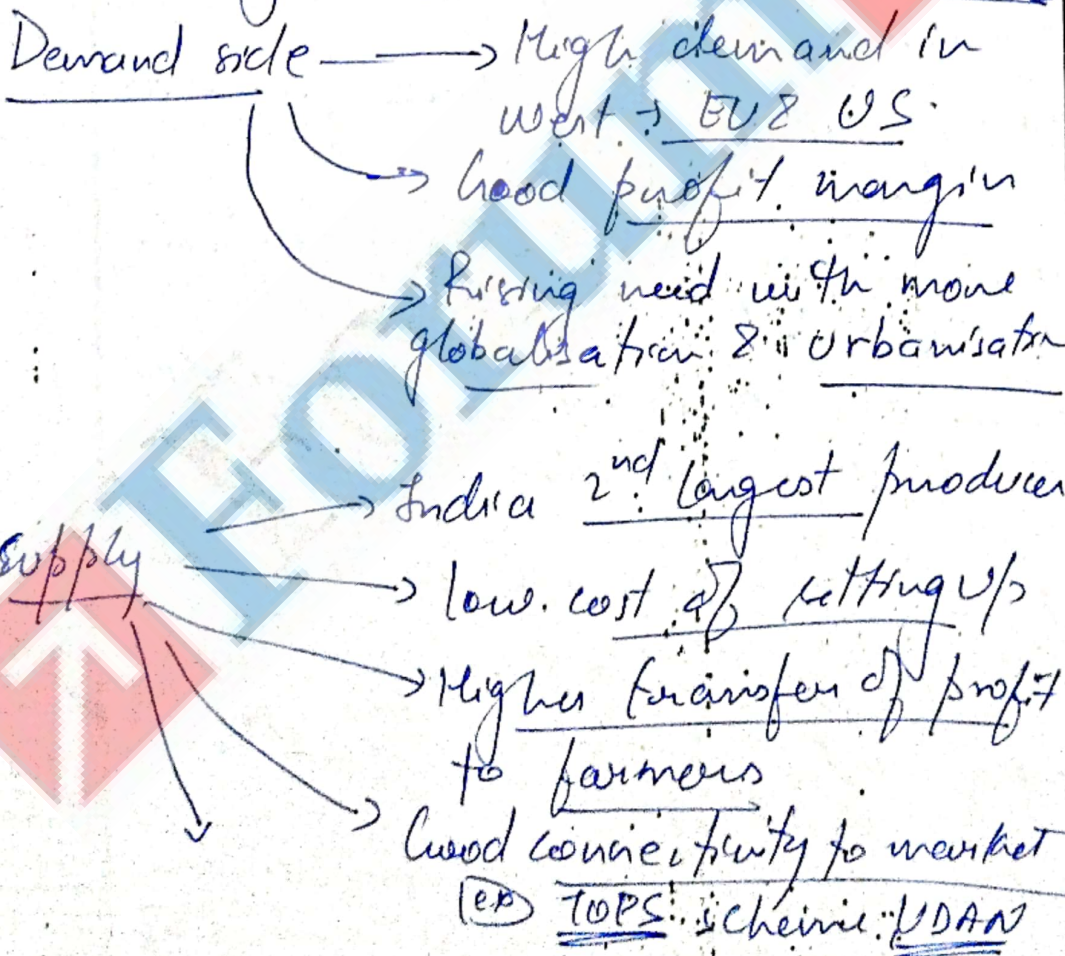 Demand side → High demand in
West → EU & US.
→ Good profit margin
→ Rising need with more
globalisation & urbanisation
→ India 2nd largest producer
Supply
→ low cost of setting up
→ Higher transfer of profit
to farmers
→ Good connectivity to market
(ex) TOPS scheme, UDAN
Forum